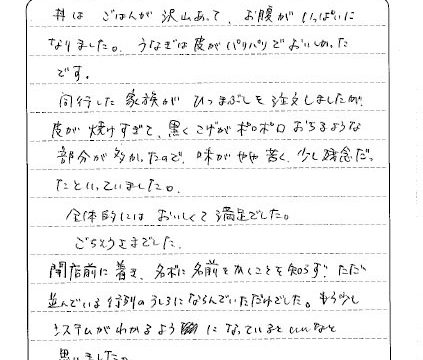 丼は ごはんが 沢山あって、お腹が いっぱいに
なりました。うなぎは皮が パリパリで おいしかった
です。
同行した 家族が ひつまぶしを注文しましたが、
皮が 焼けすぎて、黒くこげが ポロポロ おちるような
部分が 多かったので、味が やや 苦く、少し残念だっ
たといっていました。
全体的には おいしくて 満足でした。
ごちそうさまでした。
開店前に 着き、名ボに 名前をかくことを知らず、ただ
並んでいる 行列のうしろにならんでいただけでした。もう少し
システムが わかるよう に なっていると いいなと
思いました。